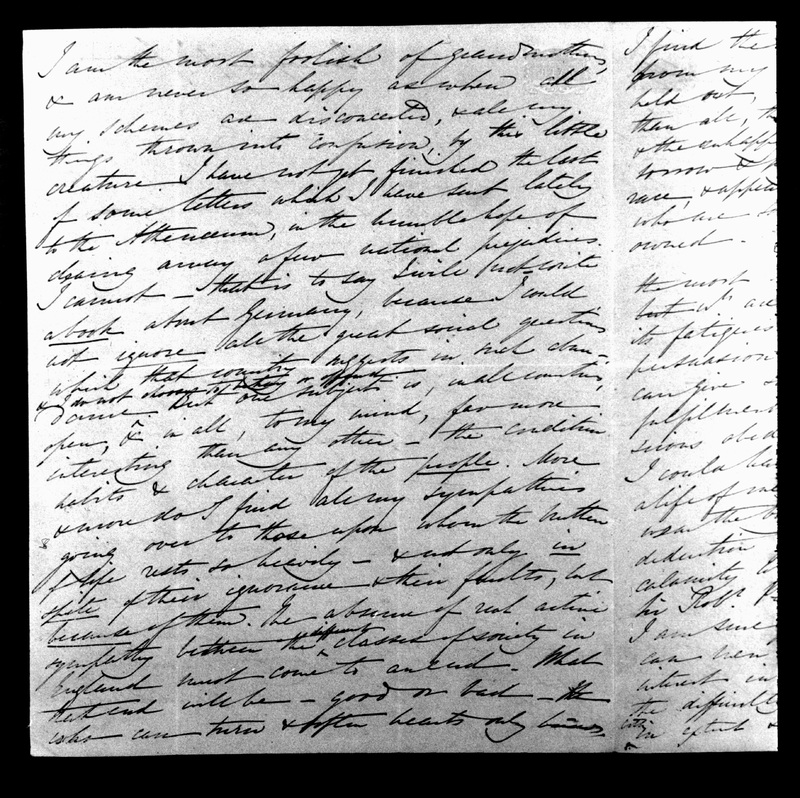 I am the most foolish of grandmothers,
& am never so happy as when all
my schemes are disconcerted, & all my
things thrown into confusion, by this little
creature. I have not yet finished the last
of some letters which I have sent lately
to the Athenaeum, in the humble hope of
clearing away a few national prejudices.
I cannot – that is to say I will not write
a book about Germany, because I could
not ignore all the great social questions
which that country suggests in such
& I do not choose
But one subject is, in all countries,
open, & in all, to my mind, far more
interesting than any other – the condition
habits & character of the people. More
& more do I find all my sympathies
going over to those upon whom the burthen
of life rests so heavily – & not only in
spite of their ignorance & their faults, but
because of them. The absence of real active
sympathy between the different classes of society in
England must come to an end. What
that end will be – good or bad – He
who can turn & soften hearts only knows
I find the
from my
held out,
than all, th
& the unhapp
sorrow &
race, & appea
who are so
owned.
the most
but
its fatigues
persuasion
can give
fulfilment
I could
a life of
wear the
deduction
calamity
Sir Robt. P
I am sure
can
interest in
the difficult
in effort &